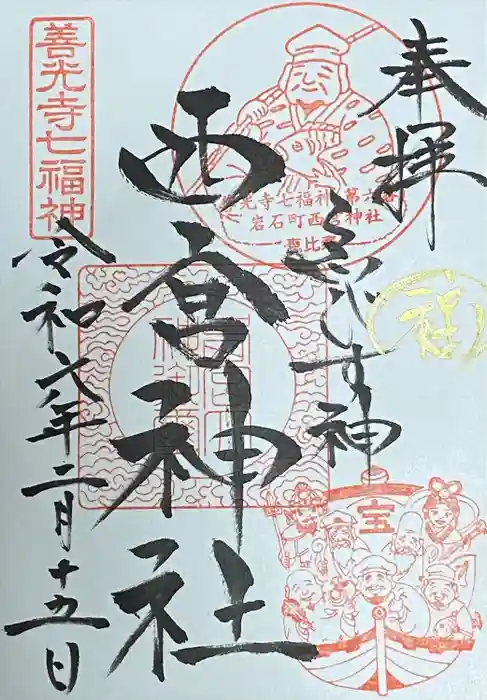 奉拝
ゑびす神
西宮神社
令和六年二月十五日
善光寺七福神
善光寺七福神 第六番
岩石町西宮神社
恵比寿
祥
宝